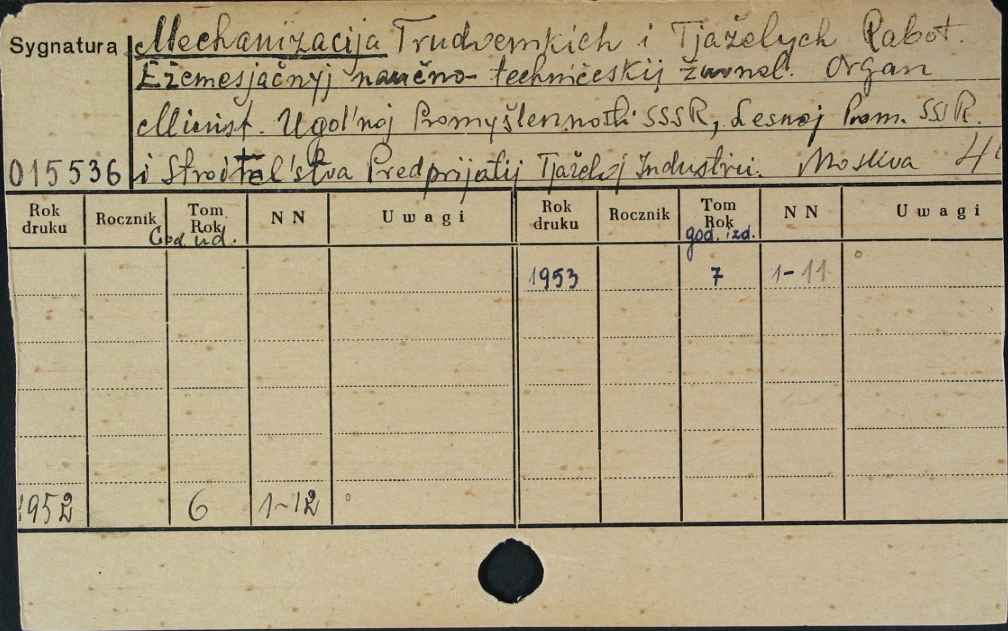 Sygnatura Mechanizacija Trudoemkich i Tjaželych Rabot.
Ežemesjačnyj naučno-techničeskij žurnal. Organ
Minist. Ugol'noj Promyšlennosti SSSR, Lesnoj Prom. SSSR.
015536 i Stroitel'stva Predprijatij Tjaželoj Industrii. Moskva 4°
Rok druku Rocznik Tom Rok God. izd. N N Uwagi Rok druku Rocznik Tom Rok god. izd. N N Uwagi
1953 7 1-11
1952 6 1-12